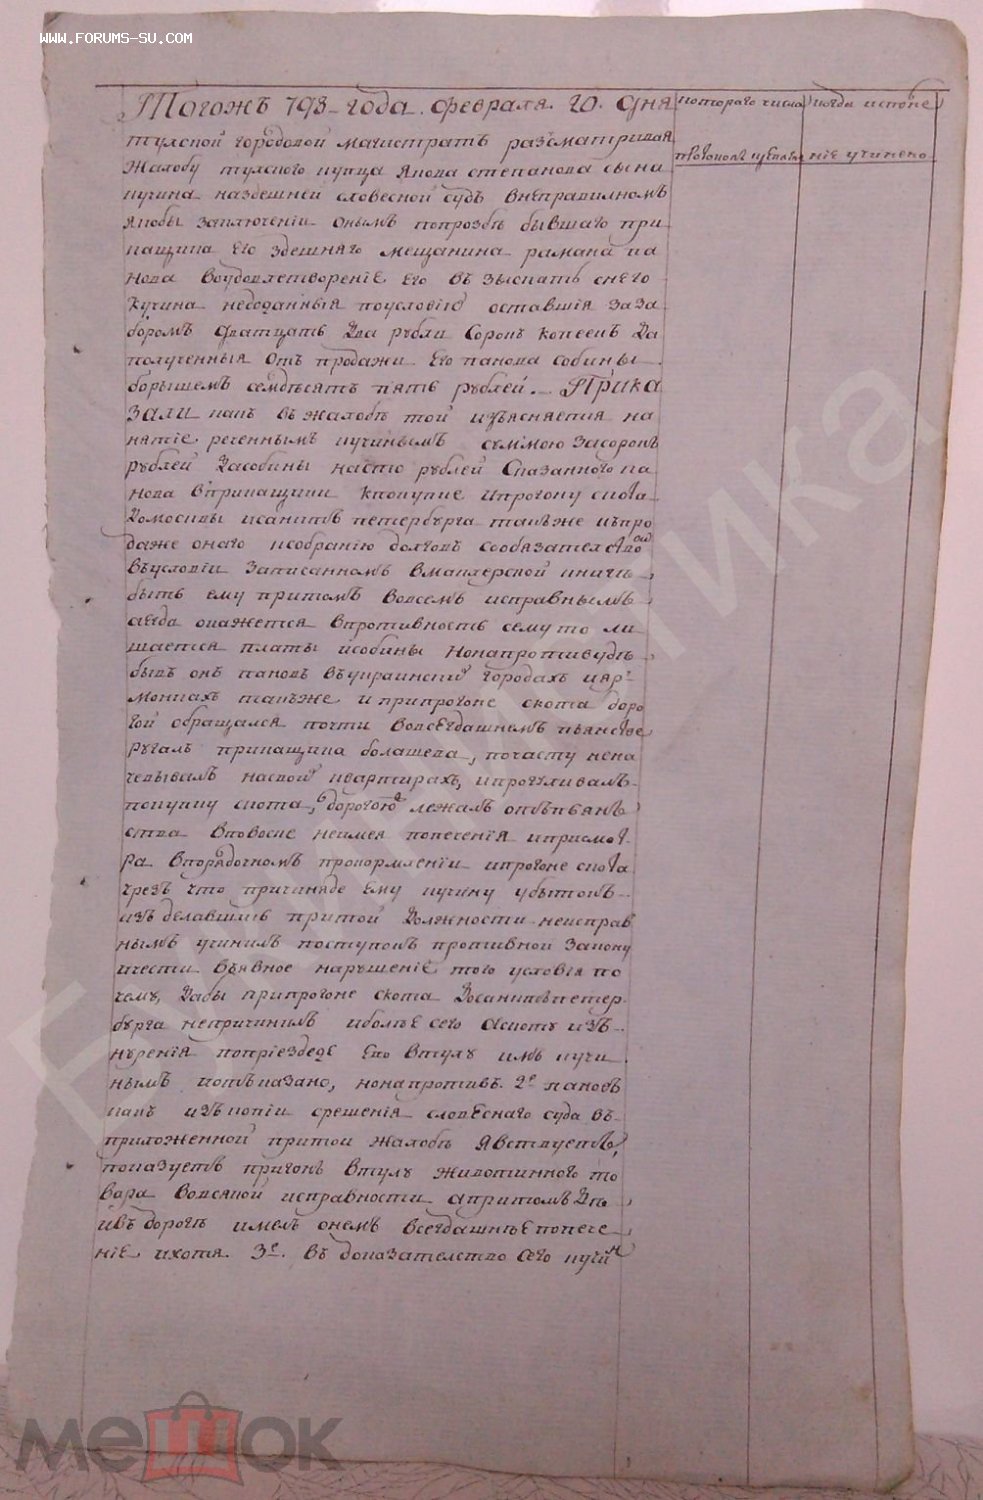 WWW.FORUMS-SU.COM
Тогожъ 798 года февраля 10 дня
котораго числа
когда и по
тулской городовой магистратъ разсматривая
протоколъ
учинено
жалобу тулского купца Якова степанова сына
кучина на здешней словесной судъ в неправилномъ
якобы заключении онымъ по прозбе бывшаго при
кащика его здешняго мещанина рамана па
нова в удовлетворение его взыскать с него
кучина недоданныя по условию оставшия за за
боромъ дватцать два рубли сорокъ копеекъ да
полученныя отъ продажи его панова собины
барышемъ семдесятъ пять рублей. Прика
зали какъ въ жалобе той изъясняетца на
нятие реченнымъ кучинымъ суммою за сорокъ
рублей да собины на сто рублей сказанного па
нова в прикащики к покупке и прогону скота
до москвы и санктъ петербурга также и къ про
даже оного и собранию долговъ с обязателством
въ условии записанномъ в маклерской книге
быть ему при томъ во всемъ исправнымъ
а когда окажется в противность сему то ли
шается платы и собины но напротивъ
былъ онъ пановъ въ украинских городахъ и яр
монкахъ также и при прогоне скота доро
гой обращался почти во всегдашнемъ пьянстве
ругалъ прикащика болашева, по часту не на
чевывалъ на своих квартирахъ, и прогуливалъ
покупку скота, дорогою лежалъ отъ пьян
ства в повоске не имея попечения и присмот
ра в порядочномъ прокормлении и прогоне скота
чрез что причиня ему кучину убытокъ
изделавшись при той должности неисправ
нымъ учинилъ поступокъ противной закону
и чести въ явное нарушение того условия по
чему, дабы при прогоне скота до санктъ петер
бурга не причинилъ и более сего скоту из
нурения по приезде его в тулу имъ кучи
нымъ отказано, но напротивъ. 2е пановъ
какъ изъ копии с решения словеснаго суда въ
приложенной при той жалобе явствуетъ,
показуетъ пригонъ в тулу животинного то
вара во всякой исправности а при томъ
и въ дороге имелъ о немъ всегдашнее попече
ние и хотя. 3е. въ доказателство сего кучин
Букинистика
мешок